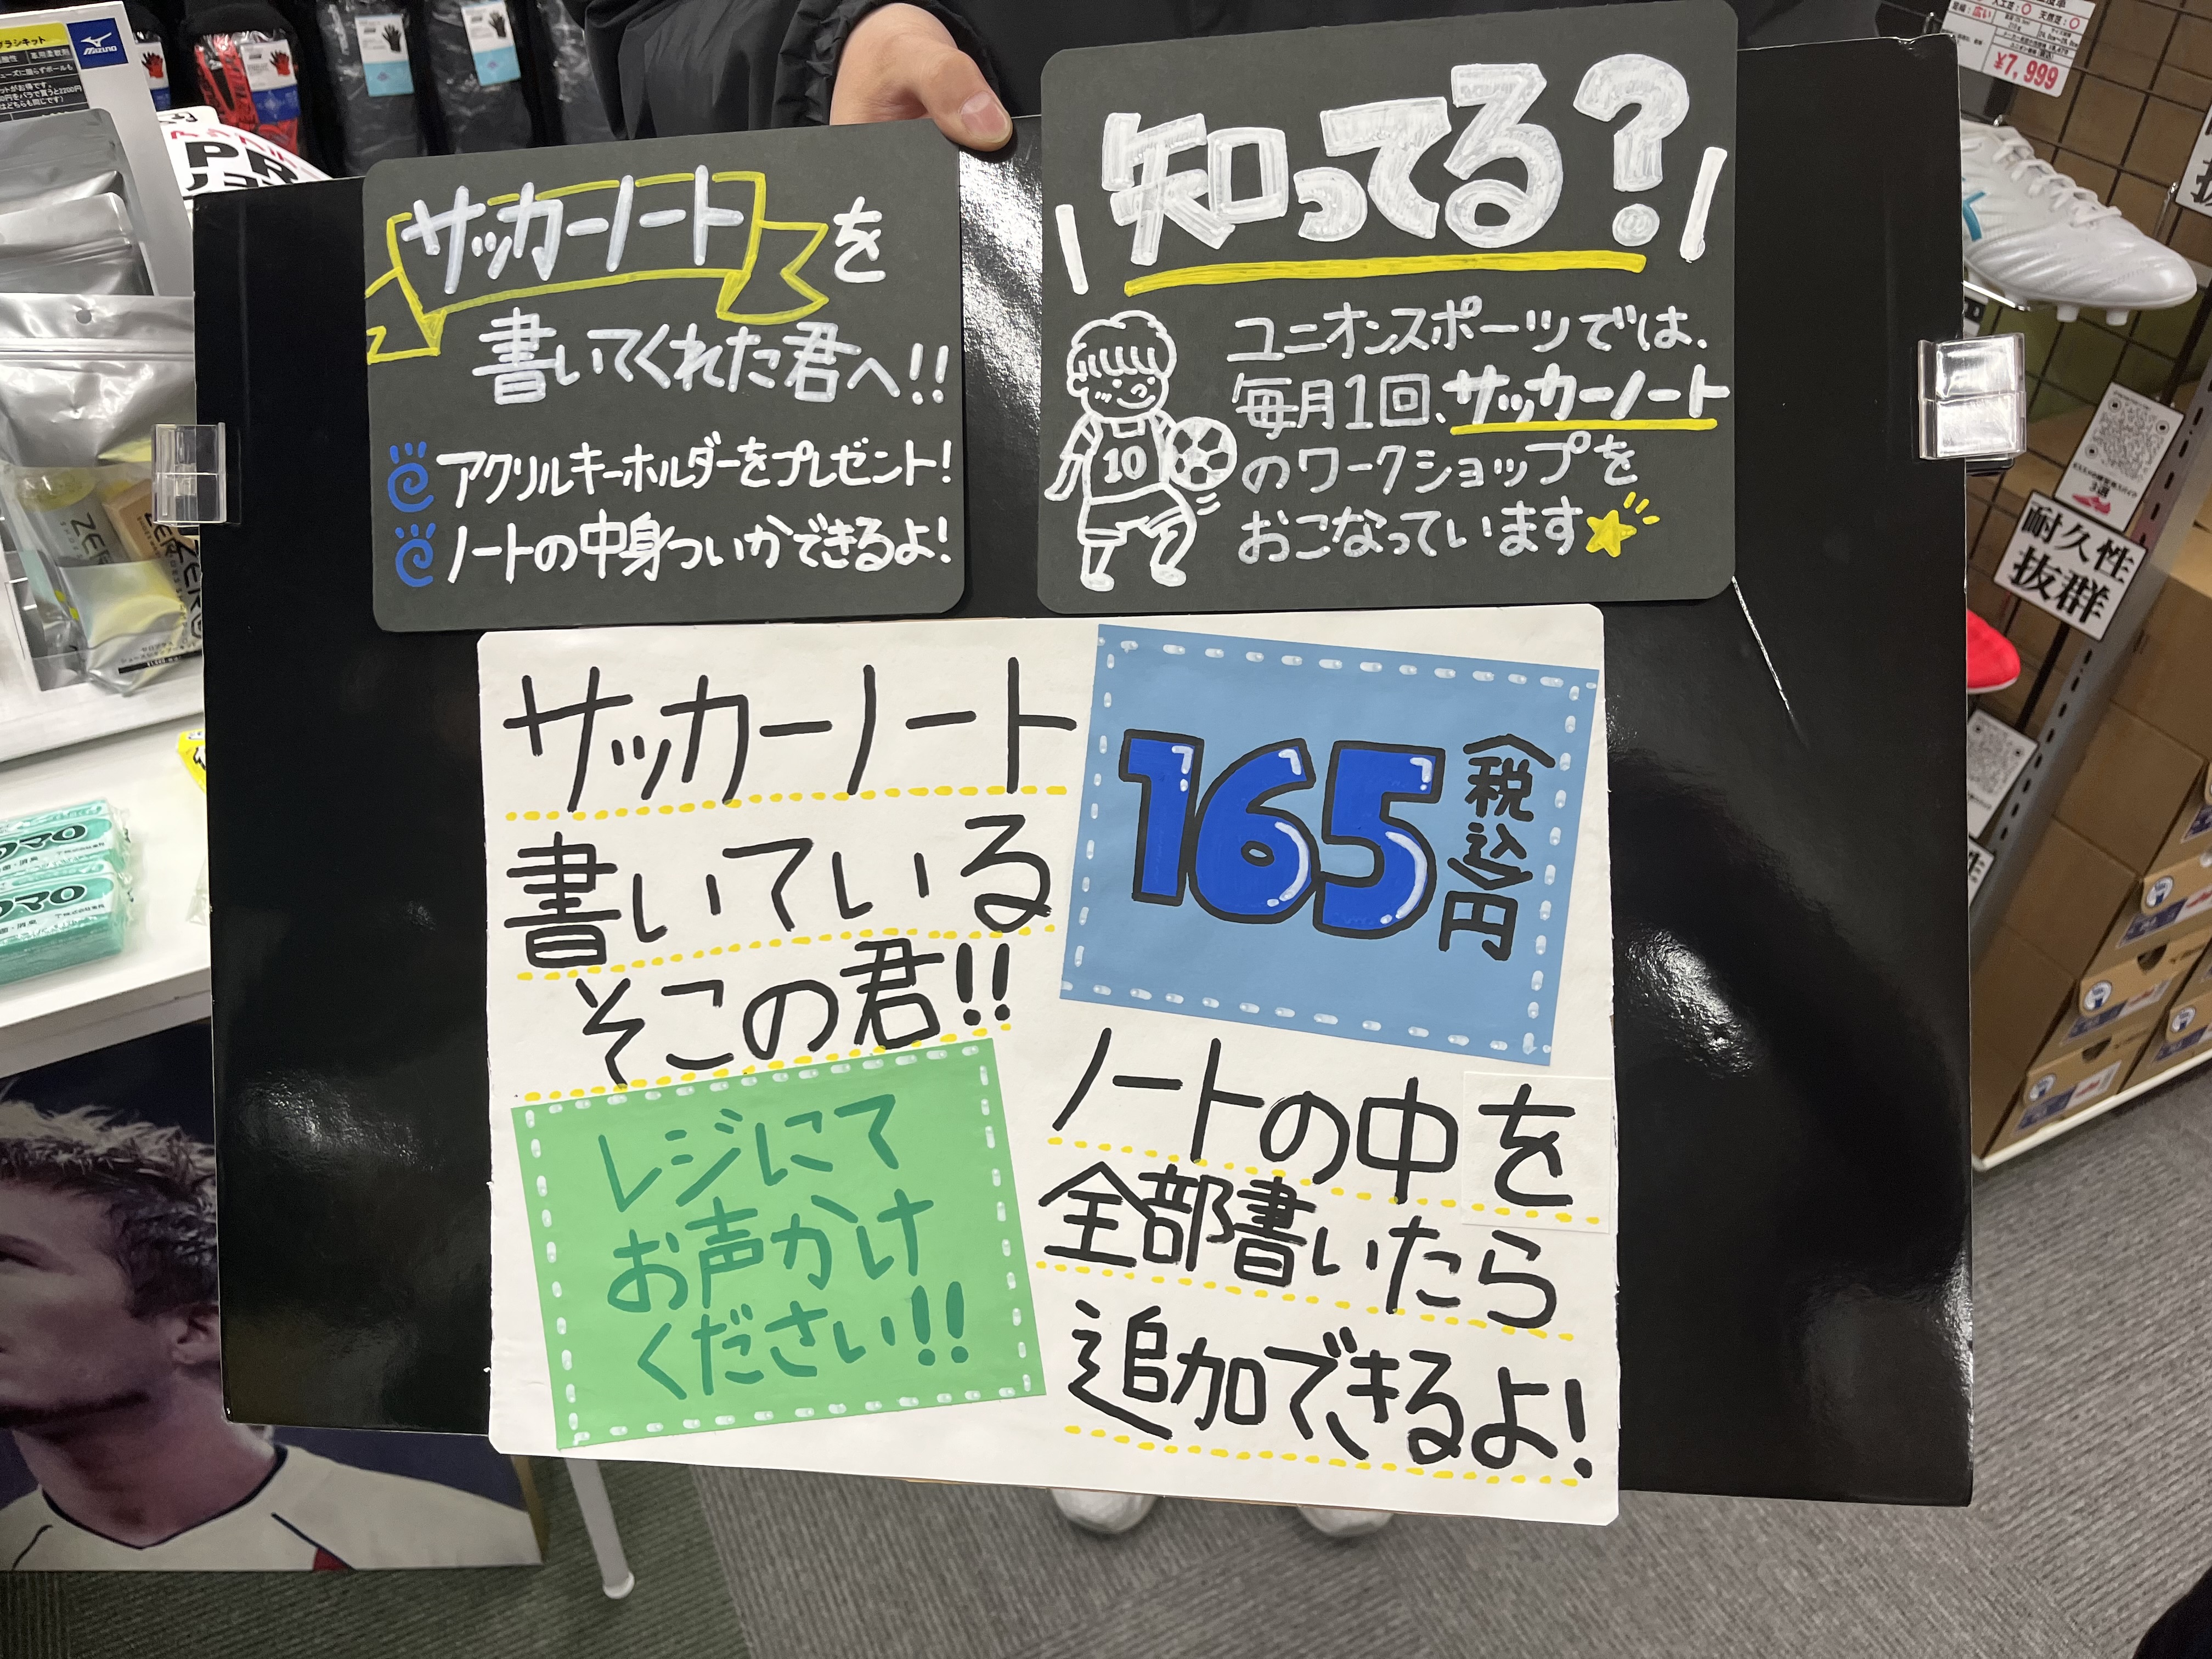 サッカーノートを
書いてくれた君へ!!
アクリルキーホルダーをプレゼント!
ノートの中身ついかできるよ!
知ってる?
ユニオンスポーツでは、
毎月1回、サッカーノート
のワークショップを
おこなっています
10
サッカーノート
書いている
そこの君!!
165円
(税込)
レジにて
お声かけ
ください!!
ノートの中を
全部書いたら
追加できるよ!
MIZUNO
¥7,999
耐久性
抜群
3選